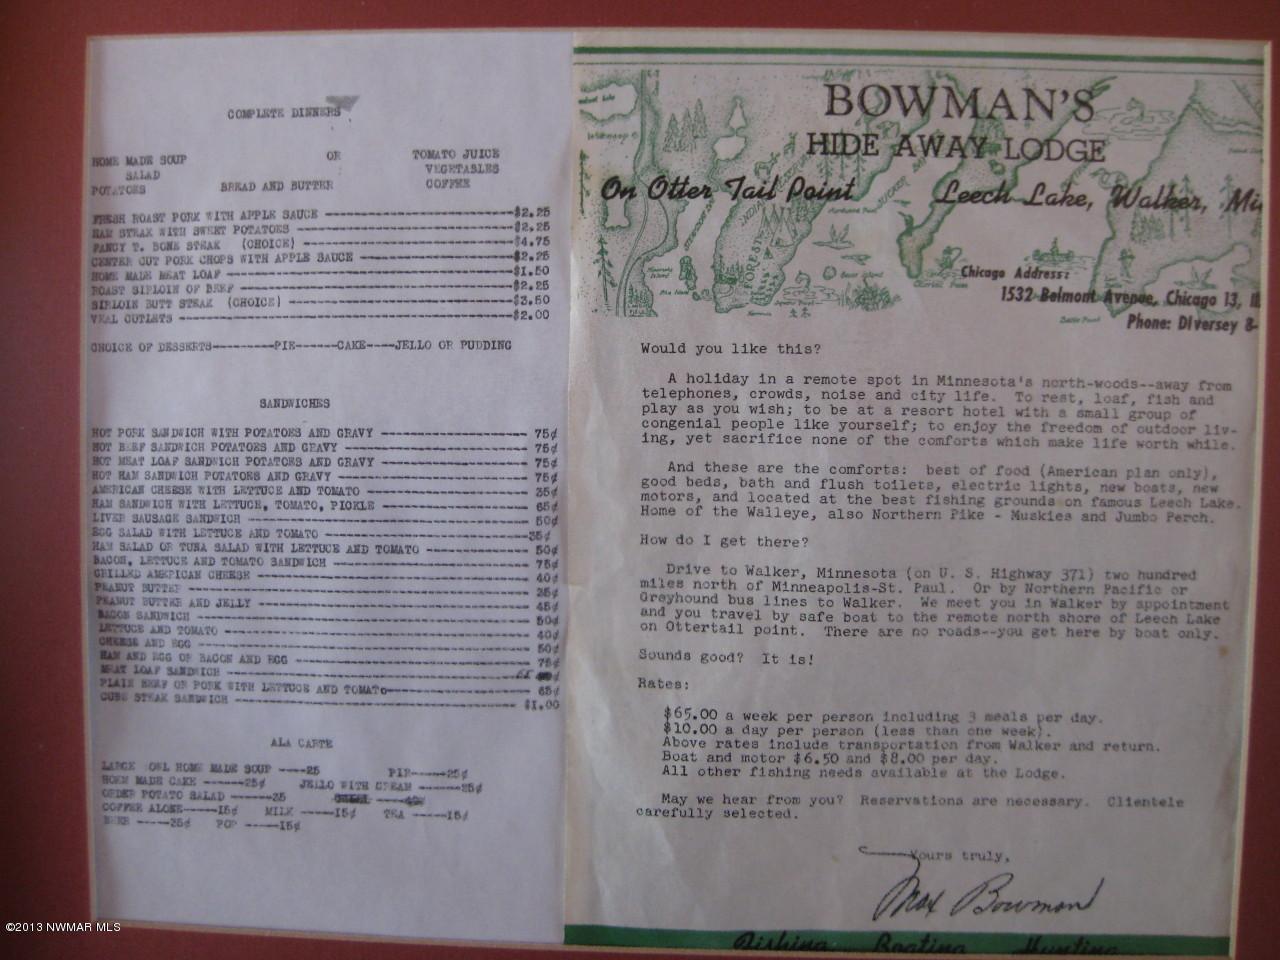 COMPLETE DINNERS
HOME MADE SOUP OR TOMATO JUICE
SALAD VEGETABLES
POTATOES BREAD AND BUTTER COFFEE
FRESH ROAST PORK WITH APPLE SAUCE ---------------------$2.25
HAM STEAK WITH SWEET POTATOES ---------------------$2.25
FANCY T. BONE STEAK (CHOICE) ---------------------$4.75
CENTER CUT PORK CHOPS WITH APPLE SAUCE ---------------------$2.25
HOME MADE MEAT LOAF ---------------------$1.50
ROAST SIRLOIN OF BEEF ---------------------$2.25
SIRLOIN BUTT STEAK (CHOICE) ---------------------$3.50
VEAL CUTLETS ---------------------$2.00
CHOICE OF DESSERTS---------PIE------CAKE----JELLO OR PUDDING
SANDWICHES
HOT PORK SANDWICH WITH POTATOES AND GRAVY --------------------- 75¢
HOT BEEF SANDWICH POTATOES AND GRAVY --------------------- 75¢
HOT MEAT LOAF SANDWICH POTATOES AND GRAVY --------------------- 75¢
HOT HAM SANDWICH POTATOES AND GRAVY --------------------- 75¢
AMERICAN CHEESE WITH LETTUCE AND TOMATO --------------------- 35¢
HAM SANDWICH WITH LETTUCE, TOMATO, PICKLE --------------------- 65¢
LIVER SAUSAGE SANDWICH --------------------- 50¢
EGG SALAD WITH LETTUCE AND TOMATO ---------------------35¢
HAM SALAD OR TUNA SALAD WITH LETTUCE AND TOMATO --------------- 50¢
BACON, LETTUCE AND TOMATO SANDWICH --------------------- 75¢
GRILLED AMERICAN CHEESE --------------------- 40¢
PEANUT BUTTER --------------------- 25¢
PEANUT BUTTER AND JELLY --------------------- 45¢
BACON SANDWICH --------------------- 50¢
LETTUCE AND TOMATO --------------------- 40¢
CHEESE AND EGG --------------------- 50¢
HAM AND EGG OR BACON AND EGG --------------------- 75¢
MEAT LOAF SANDWICH ---------------------
PLAIN BEEF OR PORK WITH LETTUCE AND TOMATO--------------------- 65¢
CUBE STEAK SANDWICH --------------------- $1.00
ALA CARTE
LARGE HOME MADE SOUP ----25 PIE-----25¢
HOME MADE CAKE -----25¢ JELLO WITH CREAM -----25¢
ORDER POTATO SALAD -----35
COFFEE ALONE-----15¢ MILK -----15¢ TEA -----15¢
BEER -----35¢ POP -----15¢
BOWMAN'S
HIDE AWAY LODGE
On Otter Tail Point Leech Lake, Walker, Mi
Chicago Address:
1532 Belmont Avenue, Chicago 13, Il
Phone: DIversey 8-
Would you like this?
A holiday in a remote spot in Minnesota's north-woods--away from
telephones, crowds, noise and city life. To rest, loaf, fish and
play as you wish; to be at a resort hotel with a small group of
congenial people like yourself; to enjoy the freedom of outdoor liv-
ing, yet sacrifice none of the comforts which make life worth while.
And these are the comforts: best of food (American plan only),
good beds, bath and flush toilets, electric lights, new boats, new
motors, and located at the best fishing grounds on famous Leech Lake.
Home of the Walleye, also Northern Pike - Muskies and Jumbo Perch.
How do I get there?
Drive to Walker, Minnesota (on U. S. Highway 371) two hundred
miles north of Minneapolis-St. Paul. Or by Northern Pacific or
Greyhound bus lines to Walker. We meet you in Walker by appointment
and you travel by safe boat to the remote north shore of Leech Lake
on Ottertail point. There are no roads--you get here by boat only.
Sounds good? It is!
Rates:
$65.00 a week per person including 3 meals per day.
$10.00 a day per person (less than one week).
Above rates include transportation from Walker and return.
Boat and motor $6.50 and $8.00 per day.
All other fishing needs available at the Lodge.
May we hear from you? Reservations are necessary. Clientele
carefully selected.
Yours truly,
Max Bowman
Fishing Boating Hunting
©2013 NWMAR MLS